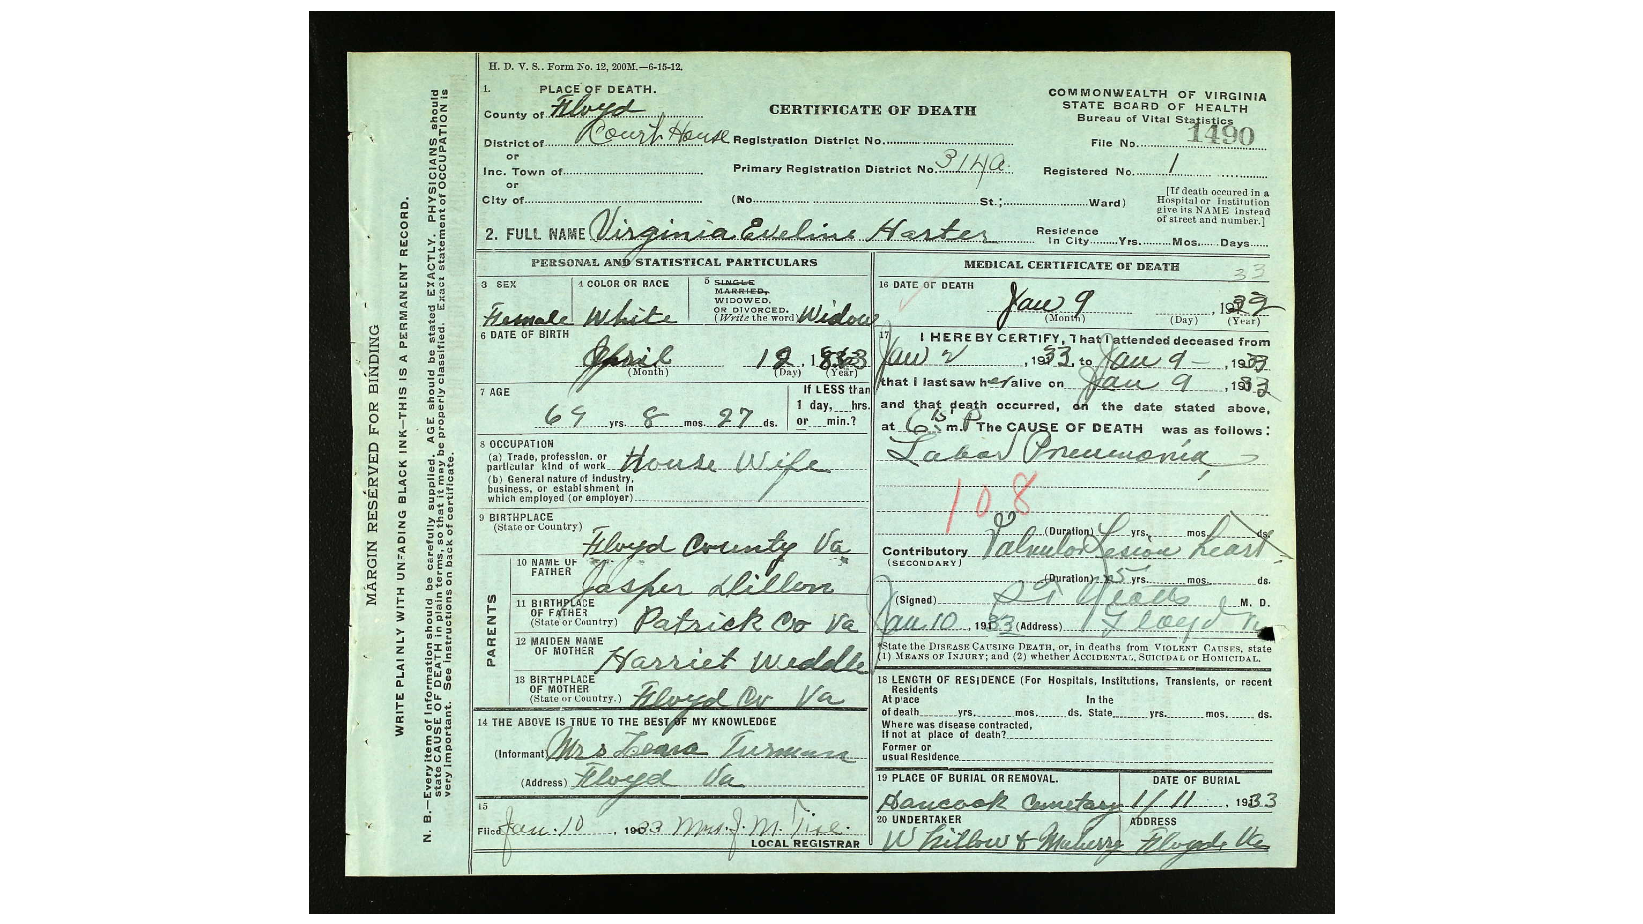 H. D. V. S.. Form No. 12, 200M.—6-15-12.
1. PLACE OF DEATH.
County of Floyd
District of Court House
or
Inc. Town of
or
City of
CERTIFICATE OF DEATH
Registration District No.
Primary Registration District No. 314a
(No. St.; Ward)
COMMONWEALTH OF VIRGINIA
STATE BOARD OF HEALTH
Bureau of Vital Statistics
File No. 1490
Registered No. 1
[If death occured in a
Hospital or Institution
give its NAME instead
of street and number.]
2. FULL NAME Virginia Eveline Harter
Residence
In City Yrs. Mos. Days
PERSONAL AND STATISTICAL PARTICULARS
3 SEX
Female
4 COLOR OR RACE
White
5 SINGLE
MARRIED,
WIDOWED.
OR DIVORCED.
(Write the word) Widow
6 DATE OF BIRTH
April 12, 1863
(Month) (Day) (Year)
7 AGE
69 yrs. 8 mos. 27 ds.
If LESS than
1 day, hrs.
or min.?
8 OCCUPATION
(a) Trade, profession, or
particular kind of work House Wife
(b) General nature of industry,
business, or establishment in
which employed (or employer)
9 BIRTHPLACE
(State or Country)
Floyd County Va
PARENTS
10 NAME OF
FATHER Jasper Dillon
11 BIRTHPLACE
OF FATHER
(State or Country) Patrick Co Va
12 MAIDEN NAME
OF MOTHER Harriet Weddle
13 BIRTHPLACE
OF MOTHER
(State or Country.) Floyd Co Va
14 THE ABOVE IS TRUE TO THE BEST OF MY KNOWLEDGE
(Informant) Mrs Turman
(Address) Floyd Va
15
Filed Jan. 10, 1933 Mrs. J. M.
LOCAL REGISTRAR
MEDICAL CERTIFICATE OF DEATH
33
16 DATE OF DEATH
Jan 9, 19
(Month) (Day) (Year)
17 I HEREBY CERTIFY, That I attended deceased from
Jan 2, 1933, to Jan 9 - 1933
that I last saw her alive on Jan 9, 1933
and that death occurred, on the date stated above,
at 6 P m. The CAUSE OF DEATH was as follows:
Labor Pneumonia
108
(Duration) yrs. mos. ds.
Contributory Valvular Lesion heart
(SECONDARY)
(Duration) 5 yrs. mos. ds.
(Signed) M. D.
Jan 10, 1933 (Address) Floyd
*State the DISEASE CAUSING DEATH, or, in deaths from VIOLENT CAUSES, state
(1) MEANS OF INJURY; and (2) whether ACCIDENTAL, SUICIDAL or HOMICIDAL.
18 LENGTH OF RESIDENCE (For Hospitals, Institutions, Transients, or recent
Residents
At place In the
of death yrs. mos. ds. State yrs. mos. ds.
Where was disease contracted,
If not at place of death?
Former or
usual Residence
19 PLACE OF BURIAL OR REMOVAL.
Hancock Cemetary
DATE OF BURIAL
1/11, 1933
20 UNDERTAKER
Whitlow &
ADDRESS
Floyd Va
MARGIN RESERVED FOR BINDING
WRITE PLAINLY WITH UNFADING BLACK INK—THIS IS A PERMANENT RECORD.
N. B.—Every item of information should be carefully supplied. AGE should be stated EXACTLY. PHYSICIANS should
state CAUSE OF DEATH in plain terms, so that it may be properly classified. Exact statement of OCCUPATION is
very important. See instructions on back of certificate.